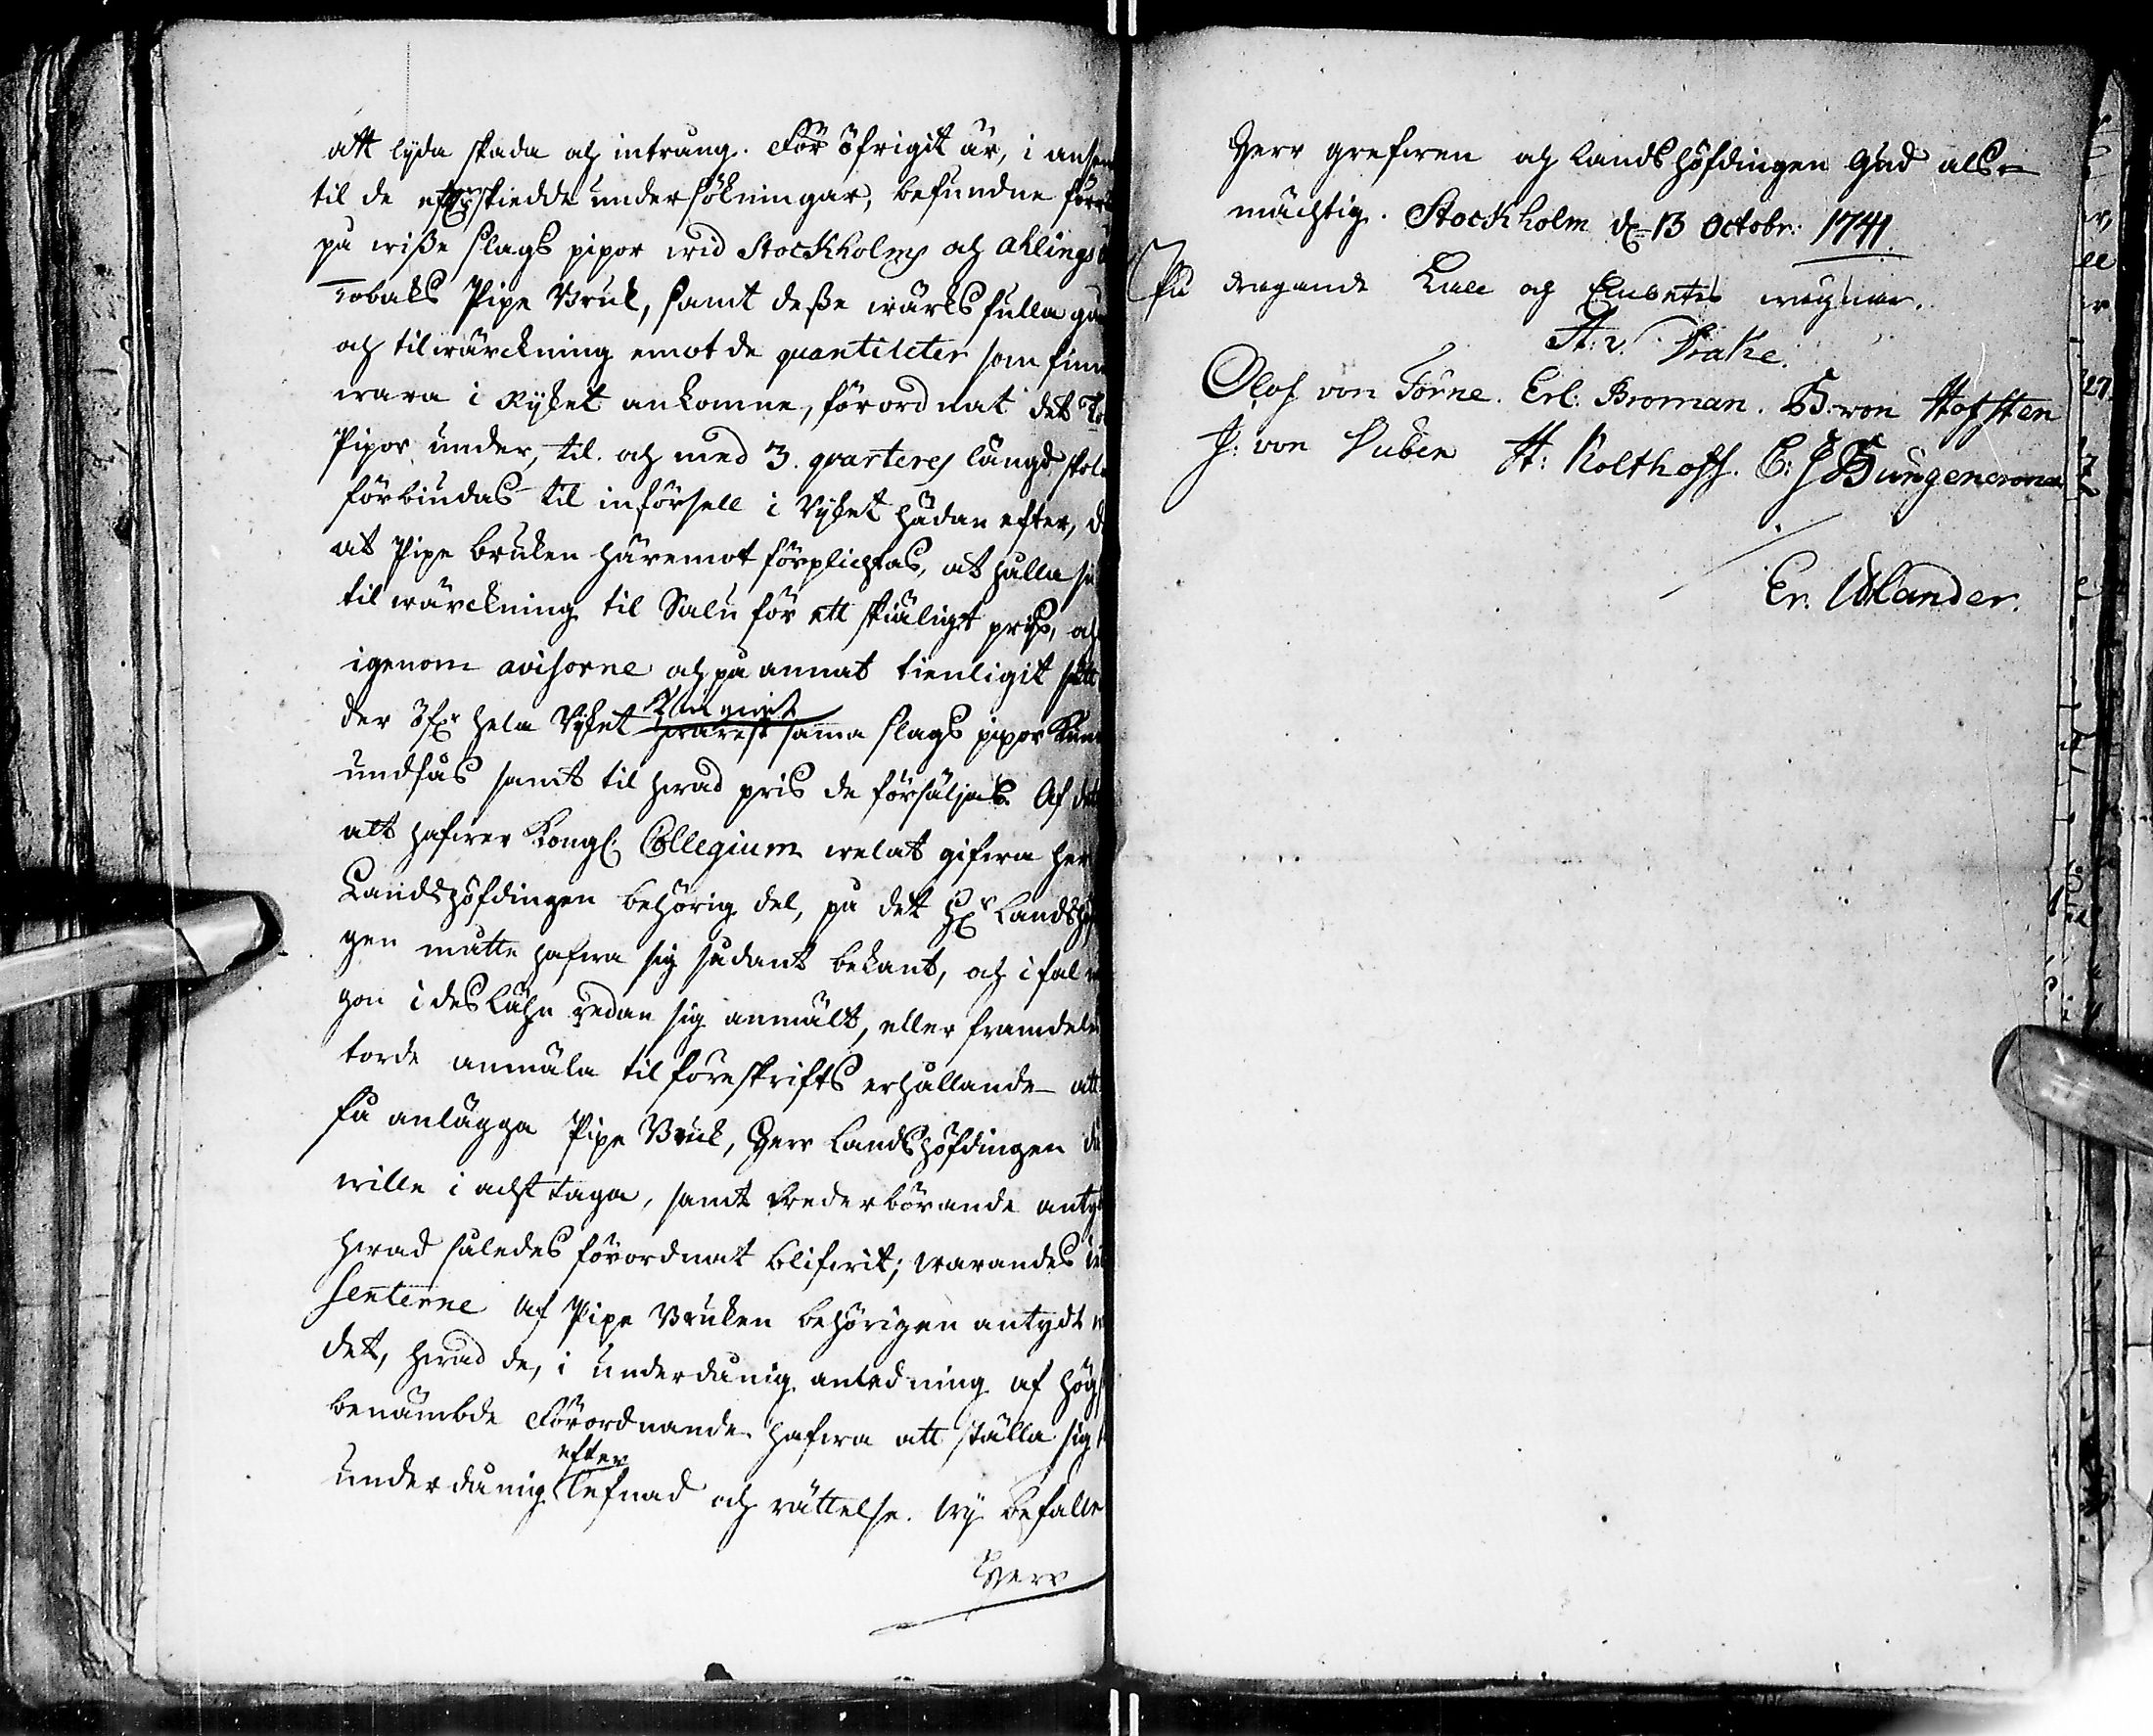 att lyda skada och intrång. För öfrigit är, i anseen
til de efterskiedde undersökningar, befundne förr
på wisse slags pipor wid Stockholms och Ahlingså
Tobaks Pipe Bruk, samt desse wärks fulla gå
och tilwärckning emot de quantiteter som finn
wara i Ryket ankomne, förordnat det To
Pipor under, til och med 3. qvarters längd skola
förbiudas til införsell i Ryket hädan efter, d
at Pipe bruken häremot förplichtas, at hålla si
tilwärckning til Salu för ett skiäligt prys, och
igenom avisorne och på annat tienligit sätt
der öfr hela Ryket kungiöra
hwarest samma slags pipor kun
undfås samt til hwad pris de försäljas. Af dett
alt hafwer Kongl: Collegium welat gifwa Her
Landshöfdingen behörig del, på det Hr Landshöf
gen måtte hafwa sig sådant bekant, och ifal n
gon i des Lähn redan sig anmält, eller framdeles
torde anmäla til föreskrifts erhållande att
få anlägga Pipe Bruk, Herr Landshöfdingen dä
wille i acht taga, samt wederbörande antyd
hwad således förordnat blifwit; warandes In
senterne af Pipe Bruken behörigen antydt w
det, hwad de, i underdånig anledning af hög
benämbde Förordnande hafwa att ställa sig t
efter
underdånig lefnad och rättelse. Wy befalle
Herr
Herr Grefwen och Landshöfdingen Gud als-
mächtig. Stockholm d 13 Octobr: 1741.
På dragande Kall och Embetes wägnar.
A: v. Drake.
Olof von Törne. Erl: Broman. B: von Hofsten
J: von Duben H: Kolthoff. C: J Bungencrona
Er. Wlander.